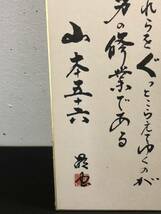 れらをぐっとこらえてゆくのが
男の修業である
山本五十六